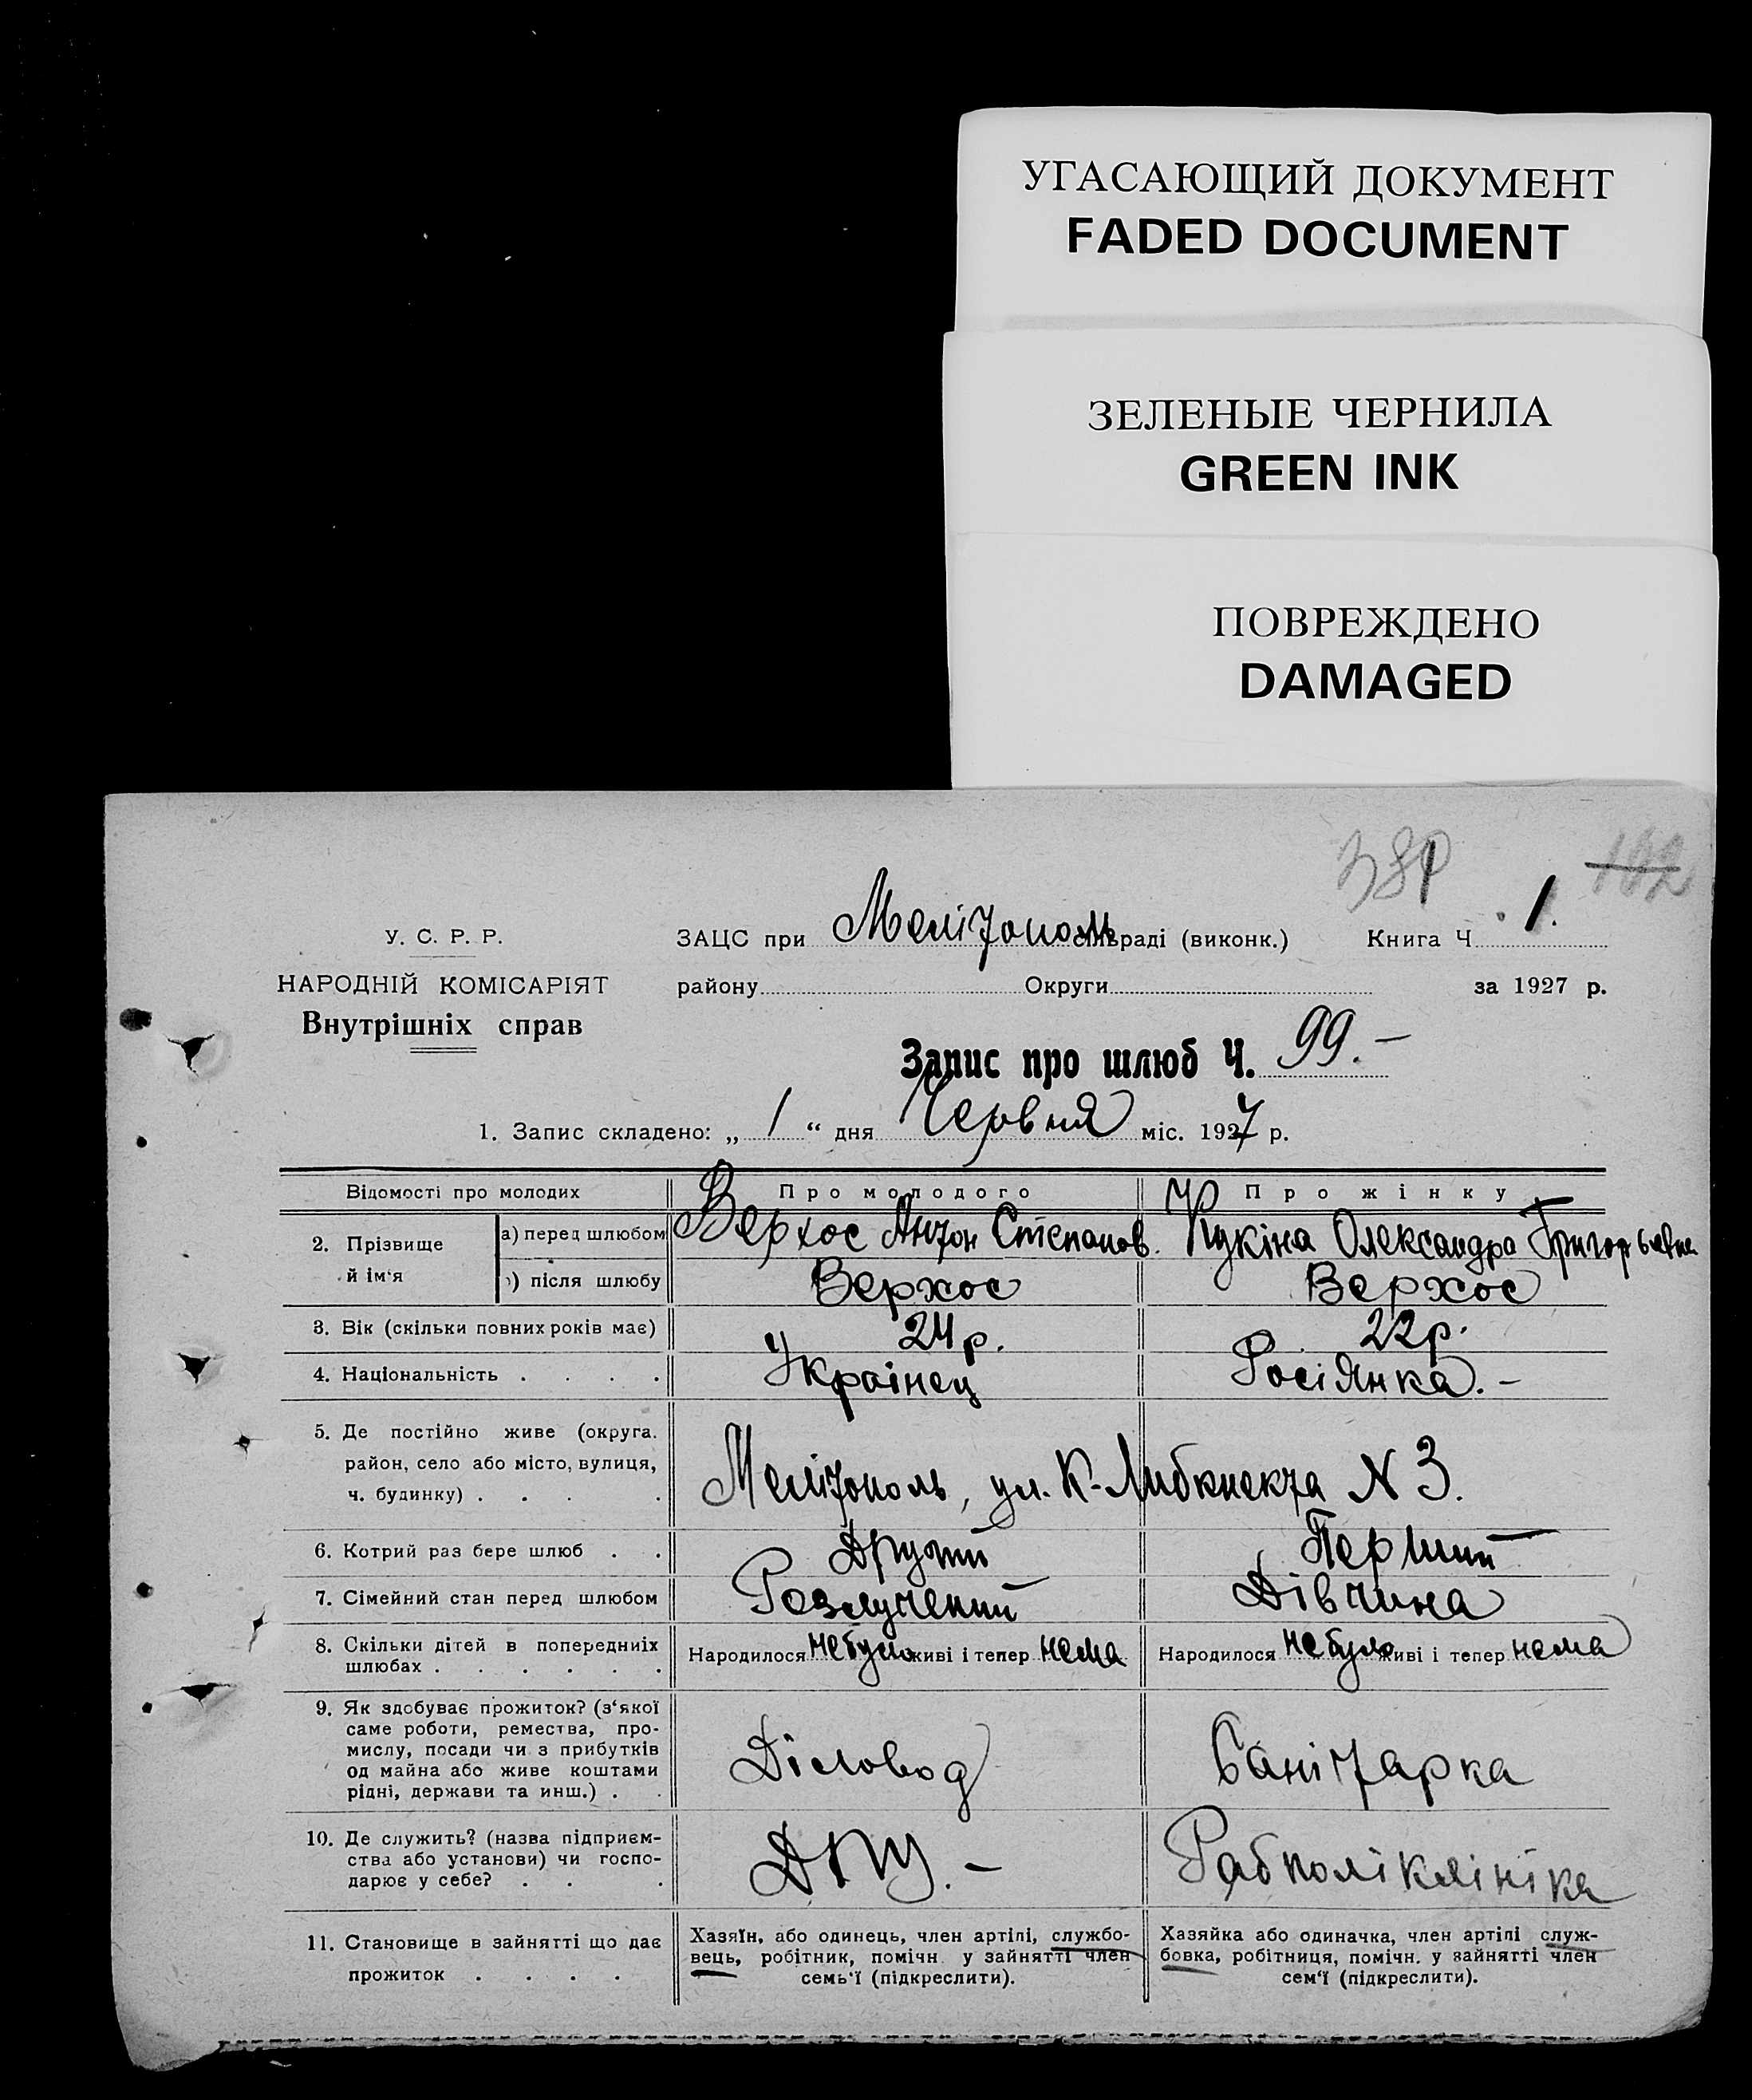 УГАСАЮЩИЙ ДОКУМЕНТ
FADED DOCUMENT
ЗЕЛЕНЫЕ ЧЕРНИЛА
GREEN INK
ПОВРЕЖДЕНО
DAMAGED
102
У. С. Р. Р.
ЗАЦС при Мелітополь сільраді (виконк.) Книга Ч 1.
НАРОДНІЙ КОМІСАРІЯТ
району Округи за 1927 р.
Внутрішніх справ
Запис про шлюб Ч. 99.-
1. Запис складено: „ 1 “ дня Червня міс. 1927 р.
Відомості про молодих Про молодого Про жінку
2. Прізвище й ім‘я а) перед шлюбом Верхос Антон Степанов. Кукіна Олександра Григорьевна
) після шлюбу Верхос Верхос
3. Вік (скільки повних років має) 24 р. 22 р.
4. Національність . . . . Українец Росіянка.-
5. Де постійно живе (округа.
район, село або місто, вулиця,
ч. будинку) . . . . Мелітополь, ул. К-Либкнекта N 3.
6. Котрий раз бере шлюб . . Другий Перший
7. Сімейний стан перед шлюбом Розлучений Дівчина
8. Скільки дітей в попередниіх
шлюбах . . . . . . Народилося небуло живі і тепер нема Народилося небуло живі і тепер нема
9. Як здобуває прожиток? (з‘якої
саме роботи, ремества, про-
мислу, посади чи з прибутків
од майна або живе коштами
рідні, держави та инш.) . . Діловод Санітарка
10. Де служить? (назва підприєм-
ства або установи) чи госпо-
дарює у себе? . . . ДПУ.- Рабполіклініка
11. Становище в зайнятті що дає
прожиток . . . .
Хазяїн, або одинець, член артілі, службо-
вець, робітник, помічн. у зайнятті член
семь‘ї (підкреслити).
Хазяйка або одиначка, член артілі служ-
бовка, робітниця, помічн. у зайнятті член
сем‘ї (підкреслити).